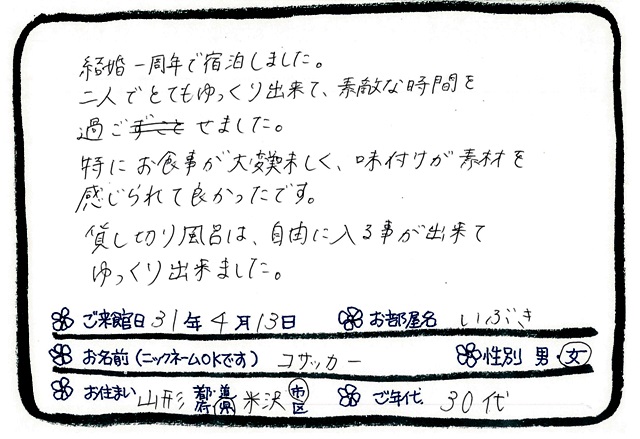 結婚一周年で宿泊しました。
二人でとてもゆっくり出来て、素敵な時間を
過ごすことせました。
特にお食事が大変美味しく、味付けが素材を
感じられて良かったです。
貸し切り風呂は、自由に入る事が出来て
ゆっくり出来ました。
ご来館日 31年 4月 13日 お部屋名 いぶき
お名前(ニックネームOKです) コサッカー 性別 男・女
お住まい 山形 都・道・府・県 米沢 市・区 ご年代 30代